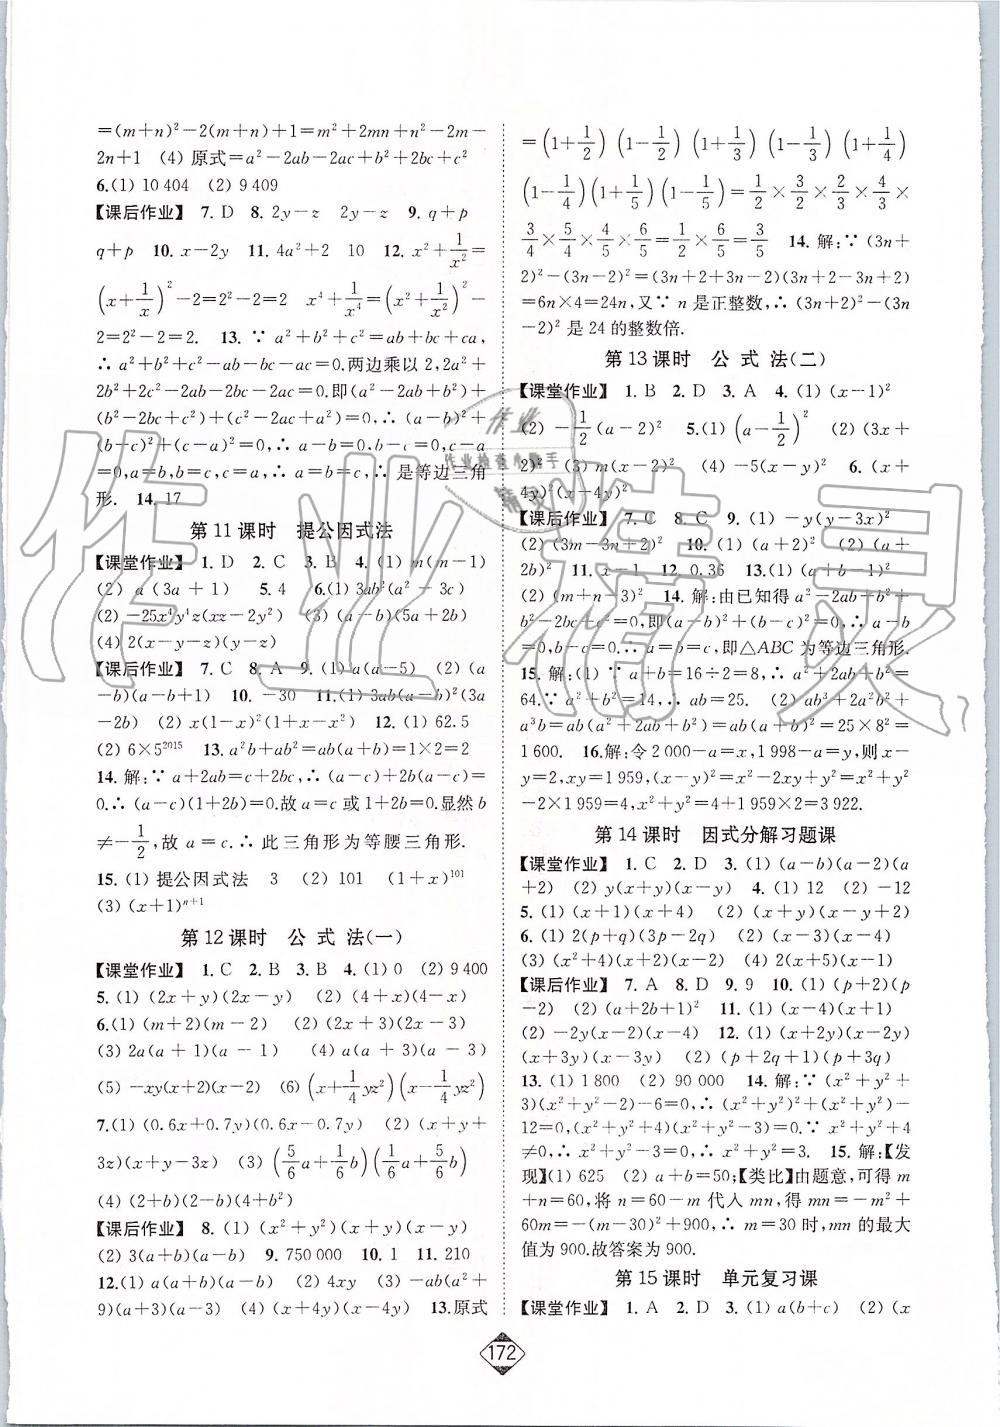 =(m+n)²-2(m+n)+1=m²+2mn+n²-2m-
2n+1 (4) 原式=a²-2ab-2ac+b²+2bc+c²
6.(1) 10 404 (2) 9 409
【课后作业】 7. D 8. 2y-z 2y-z 9. q+p
q+p 10. x-2y 11. 4a²+2 10 12. x²+1/x²=
(x+1/x)²-2=2²-2=2 x⁴+1/x⁴=(x²+1/x²)²-
2=2²-2=2. 13. ∵ a²+b²+c²=ab+bc+ca,
∴ a²+b²+c²-ab-bc-ac=0.两边乘以2,2a²+
2b²+2c²-2ab-2bc-2ac=0.即(a²-2ab+b²)+
(b²-2bc+c²)+(c²-2ac+a²)=0,∴ (a-b)²+
(b-c)²+(c-a)²=0,∴ a-b=0,b-c=0,c-a
=0,a=b,b=c,c=a,∴ a=b=c,∴ 是等边三角
形. 14. 17
第11课时 提公因式法
【课堂作业】 1. D 2. C 3. B 4. (1) m(n-1)
(2) a(3a+1) 5. 4 6.(1) 3ab³(a²-3c)
(2) -25x⁴y²z(xz-2y²) (3) (a-b)(5a+2b)
(4) 2(x-y-z)(y-z)
【课后作业】 7. C 8. A 9. (1) a(a-5) (2) (a
-b)(a-b+1) 10. -30 11.(1) 3ab(a-b)²(3a
-2b) (2) x(1-x)²(1+x-x²) 12. (1) 62.5
(2) 6×5²⁰¹⁵ 13. a²b+ab²=ab(a+b)=1×2=2
14. 解:∵ a+2ab=c+2bc,∴ a-c+2b(a-c)=
0.∴ (a-c)(1+2b)=0.故a=c或1+2b=0.显然b
≠-1/2,故a=c.∴ 此三角形为等腰三角形.
15. (1) 提公因式法 3 (2) 101 (1+x)¹⁰¹
(3) (x+1)ⁿ⁺¹
第12课时 公 式 法(一)
【课堂作业】 1. C 2. B 3. B 4. (1) 0 (2) 9 400
5. (1) (2x+y)(2x-y) (2) (4+x)(4-x)
6.(1) (m+2)(m-2) (2) (2x+3)(2x-3)
(3) 2a(a+1)(a-1) (4) a(a+3)(a-3)
(5) -xy(x+2)(x-2) (6) (x+1/4yz²)(x-1/4yz²)
7.(1) (0.6x+0.7y)(0.6x-0.7y) (2) (x+y+
3z)(x+y-3z) (3) (5/6a+1/6b)(1/6a+5/6b)
(4) (2+b)(2-b)(4+b²)
【课后作业】 8. (1) (x²+y²)(x+y)(x-y)
(2) 3(a+b)(a-b) 9. 750 000 10. 1 11. 210
12.(1) a(a+b)(a-b) (2) 4xy (3) -ab(a²+
9)(a+3)(a-3) (4) (x+4y)(x-4y) 13.原式
=(1+1/2)(1-1/2)(1+1/3)(1-1/3)(1+1/4)
(1-1/4)(1+1/5)(1-1/5)=1/2×3/2×2/3×4/3×
3/4×5/4×4/5×6/5=1/2×6/5=3/5 14. 解:∵ (3n+
2)²-(3n-2)²=(3n+2+3n-2)(3n+2-3n+2)
=6n×4=24n,又∵ n是正整数,∴ (3n+2)²-(3n
-2)²是24的整数倍.
第13课时 公 式 法(二)
【课堂作业】 1. B 2. D 3. A 4. (1) (x-1)²
(2) -1/2(a-2)² 5.(1) (a-1/2)² (2) (3x+
2)² (3) m(x-2)² (4) -5(x-y)² 6. (x+
4y)²(x-4y)²
【课后作业】 7. C 8. C 9. (1) -y(y-3x)²
(2) (3m-3n+2)² 10. (1) (a+2)² (2) (a+
2b)² 11. x-1 12. 0.36 13.(1) (a+b-1)²
(2) (m+n-3)² 14. 解:由已知得a²-2ab+b²+
b²-2bc+c²=0,即(a-b)²+(b-c)²=0,∴ a-b
=0,b-c=0.∴ a=b=c,即△ABC为等边三角形.
15. 解:(1) ∵ a+b=16÷2=8,∴ a²+2ab+b²=
64.∵ a²+b²=14,∴ ab=25. (2) ab³+2a²b²+
a³b=ab(a²+2ab+b²)=ab(a+b)²=25×8²=
1 600. 16.解:令2 000-a=x,1 998-a=y,则x-
y=2,xy=1 959,(x-y)²=x²-2xy+y²=x²+y²
-2×1 959=4,x²+y²=4+1 959×2=3 922.
第14课时 因式分解习题课
【课堂作业】 1. C 2. D 3. (1) (a-b)(a-2)(a
+2) (2) y(x+y)(x-y) 4. (1) 12 (2) -12
5. (1) (x+1)(x+4) (2) (x+y)(x-2y+2)
6. (1) 2(p+q)(3p-2q) (2) (a+2)²(a-2)²
(3) (x²+4)(x+3)(x-3) (4) 2(x+5)(x-2)
【课后作业】 7. A 8. D 9. 9 10. (1) (p+2)(p
-2) (2) (a+2b+1)² 11. (1) (x-4)(x+1)
(2) -2y(x-2)(x-4) 12. (1) (x+2y)(x-2y)
(x+3y)(x-3y) (2) (p+2q+1)(p+3q)
13. (1) 1 800 (2) 90 000 14. 解:∵ (x²+y²+
3)(x²+y²-2)-6=0,∴ (x²+y²)²+(x²+y²)-
12=0,(x²+y²+4)(x²+y²-3)=0.∵ x²+y²+4
≠0,∴ x²+y²-3=0,∴ x²+y²=3. 15. 解:【发
现】(1) 625 (2) a+b=50;【类比】由题意,可得m
+n=60,将n=60-m代入mn,得mn=-m²+
60m=-(m-30)²+900,∴ m=30时,mn的最大
值为900.故答案为900.
第15课时 单元复习课
【课堂作业】 1. A 2. D 3. (1) a(b+c) (2) (x
172
作业精灵
作业
作业检查小助手